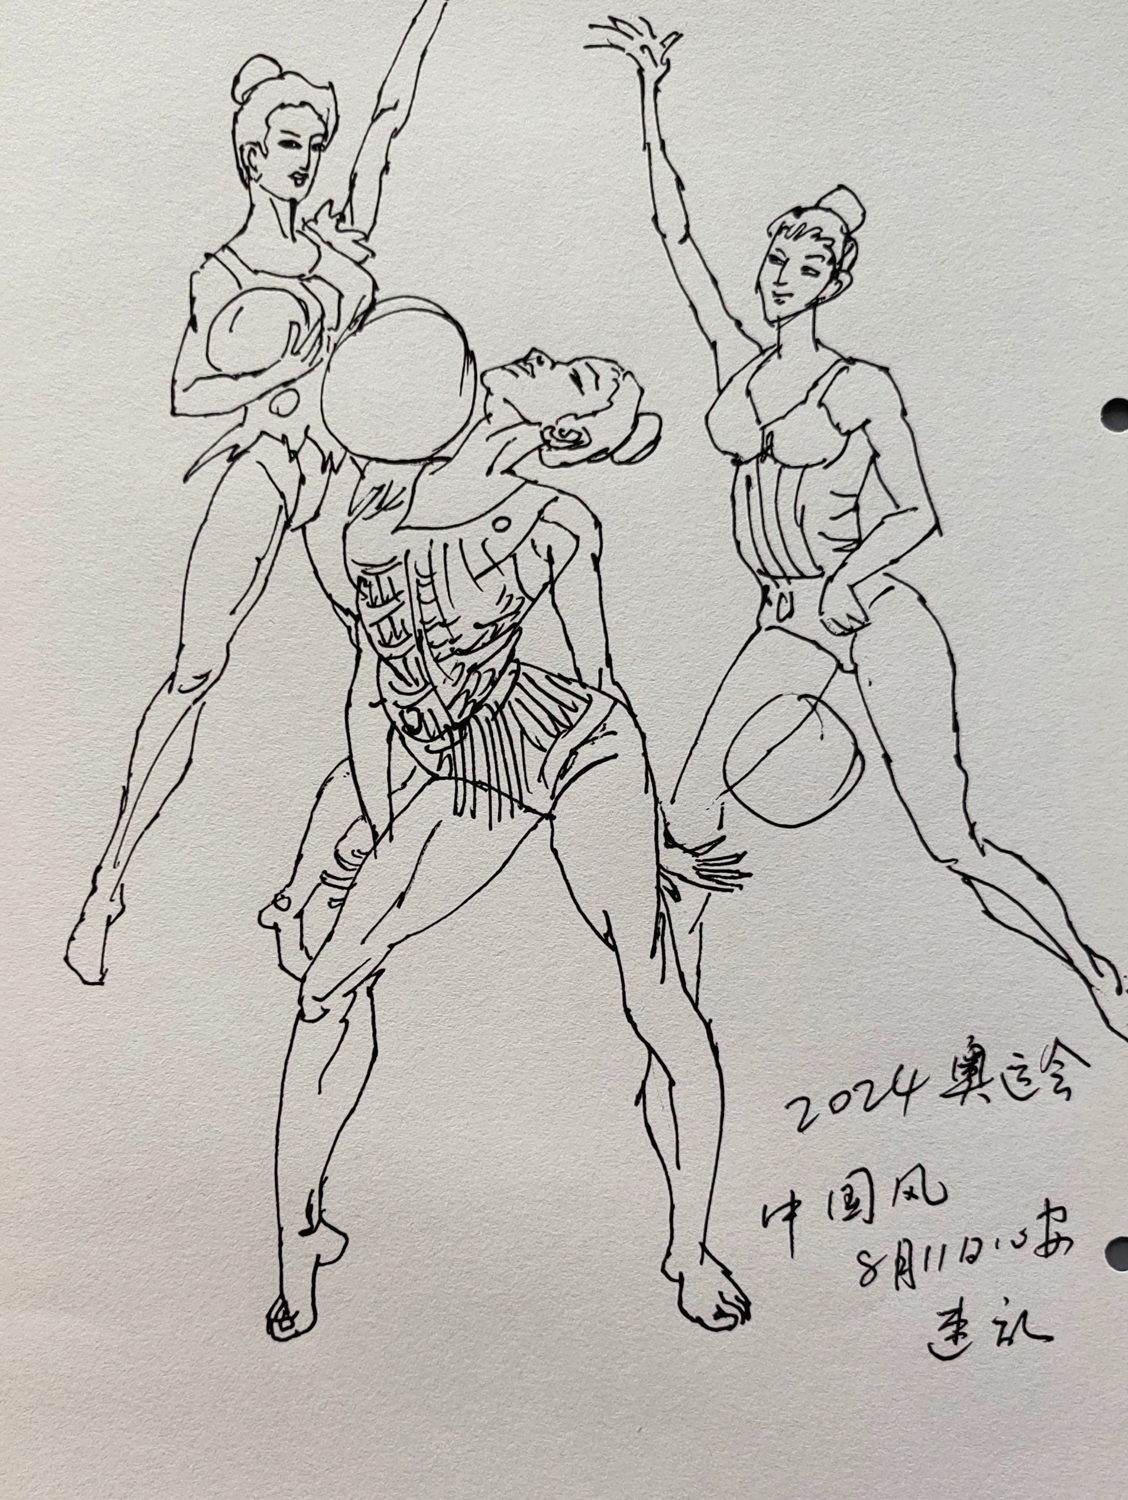 2024奥运会
中国风
8月11日心安
速记